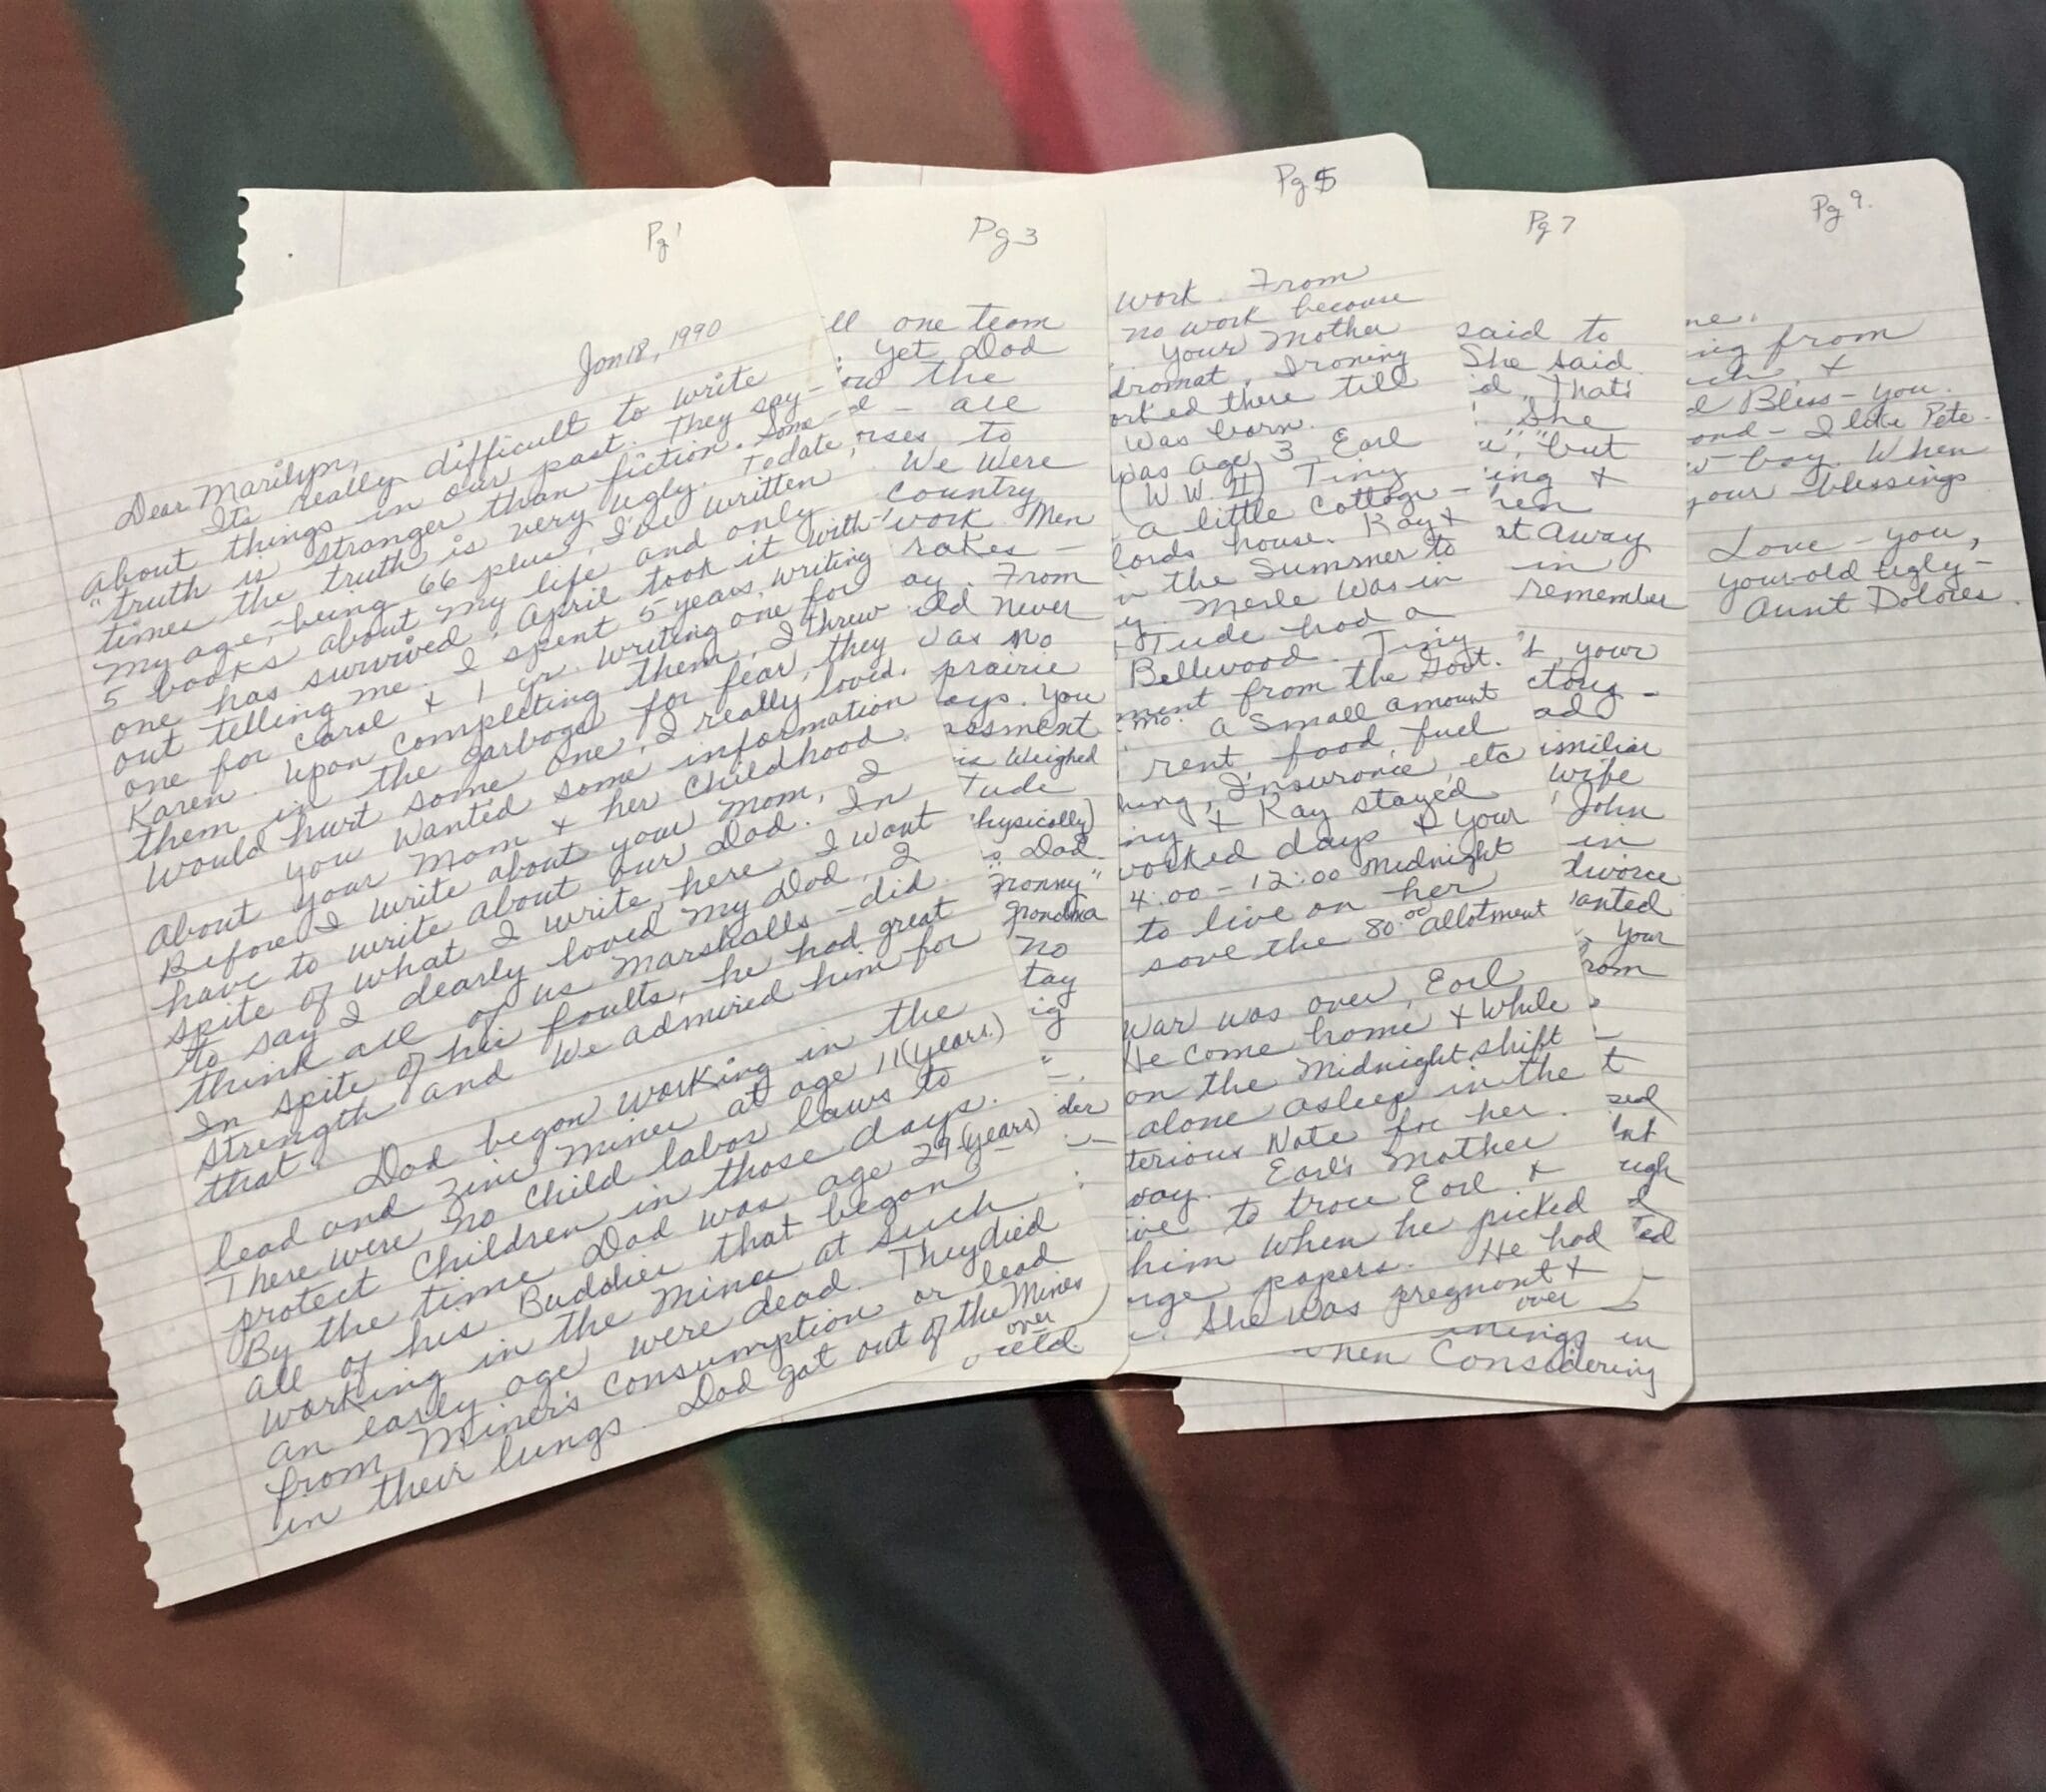 Pg 1
Jan 18, 1990
Dear Marilyn,
Its really difficult to write
about things in our past. They say -
"truth is stranger than fiction. Some-
times the truth is very ugly. To date,
my age, being 66 plus, I've written
5 books about my life and only
one has survived. April took it with-
out telling me. I spent 5 years, writing
one for Carol & 1 yr. writing one for
Karen. Upon completing them, I threw
them in the garbage for fear, they
would hurt some one, I really loved.
You wanted some information
about your Mom & her childhood.
Before I write about your Mom, I
have to write about our Dad. In
spite of what I write, here, I want
to say I dearly loved my Dad, I
think all of us Marshalls - did.
In spite of his faults, he had great
strength and we admired him for
that.
Dad began working in the
lead and zinc mines at age 11 (years.)
There were no child labor laws to
protect children in those days.
By the time Dad was age 29 (years)
all of his Buddies that began
working in the mines at such
an early age were dead. They died
from Miner's consumption or lead
in their lungs. Dad got out of the Mines
over
Pg 3
one team
Yet Dad
the
- all
to
We were
Country
work. Men
rakes -
From
never
no
prairie
You
Weighed
Tude
Dad.
"
grandma
no
Pg 5
work. From
no work because
Your Mother
Ironing
there till
was born.
was age 3, Earl
(W.W. II) Tiny
a little cottage -
lords house. Kay &
the Summer to
Merle was in
Tude had a
Bellwood. Tiny
from the Govt.
mo. a small amount
rent, food, fuel
Insurance, etc
& Kay stayed
days & your
4:00 - 12:00 Midnight
to live on her
save the 80.00 allotment
War was over, Earl
He come home & while
on the Midnight shift
alone asleep in the
Note for her.
Earl's Mother
to trace Earl &
him when he picked
papers. He had
She was pregnant &
over
Pg 7
said to
She said
That's
She
but
&
away
in
remember
your
wife
John
in
divorce
Your
in
when Considering
Pg 9.
from
&
Bless - you
I like Pete
boy. When
your blessings
Love - you,
your old Ugly -
Aunt Dolores.